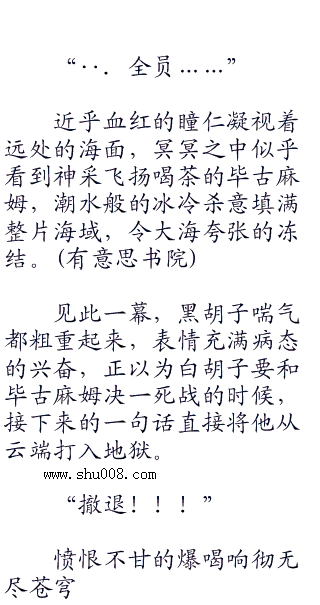 “··．全员……”
近乎血红的瞳仁凝视着
远处的海面，冥冥之中似乎
看到神采飞扬喝茶的毕古麻
姆，潮水般的冰冷杀意填满
整片海域，令大海夸张的冻
结。(有意思书院)
见此一幕，黑胡子喘气
都粗重起来，表情充满病态
的兴奋，正以为白胡子要和
毕古麻姆决一死战的时候，
接下来的一句话直接将他从
云端打入地狱。
www.shu008.com
“撤退！！！”
愤恨不甘的爆喝响彻无
尽苍穹